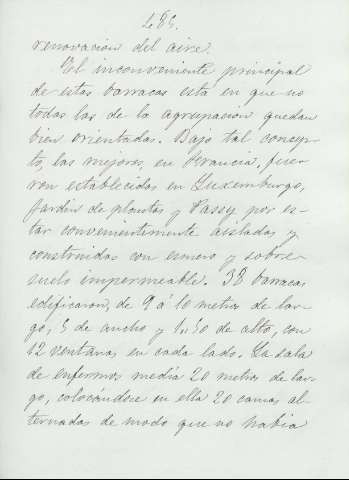 285.
renovacion del aire.
El inconveniente principal
de estas barracas está en que no
todas las de la agrupacion quedan
bien orientadas. Bajo tal concep-
to, las mejores, en Francia, fue-
ron establecidas en Luxemburgo,
Jardin de plantas y Passy por es-
tar convenientemente aisladas y
construidas con esmero y sobre
suelo impermeable. 38 barracas
edificaron, de 9 á 10 metros de lar-
go, 5 de ancho y de alto, con
12 ventanas en cada lado. La sala
de enfermos media 20 metros de lar-
go, colocándose en ella 20 camas al-
ternadas de modo que no habia